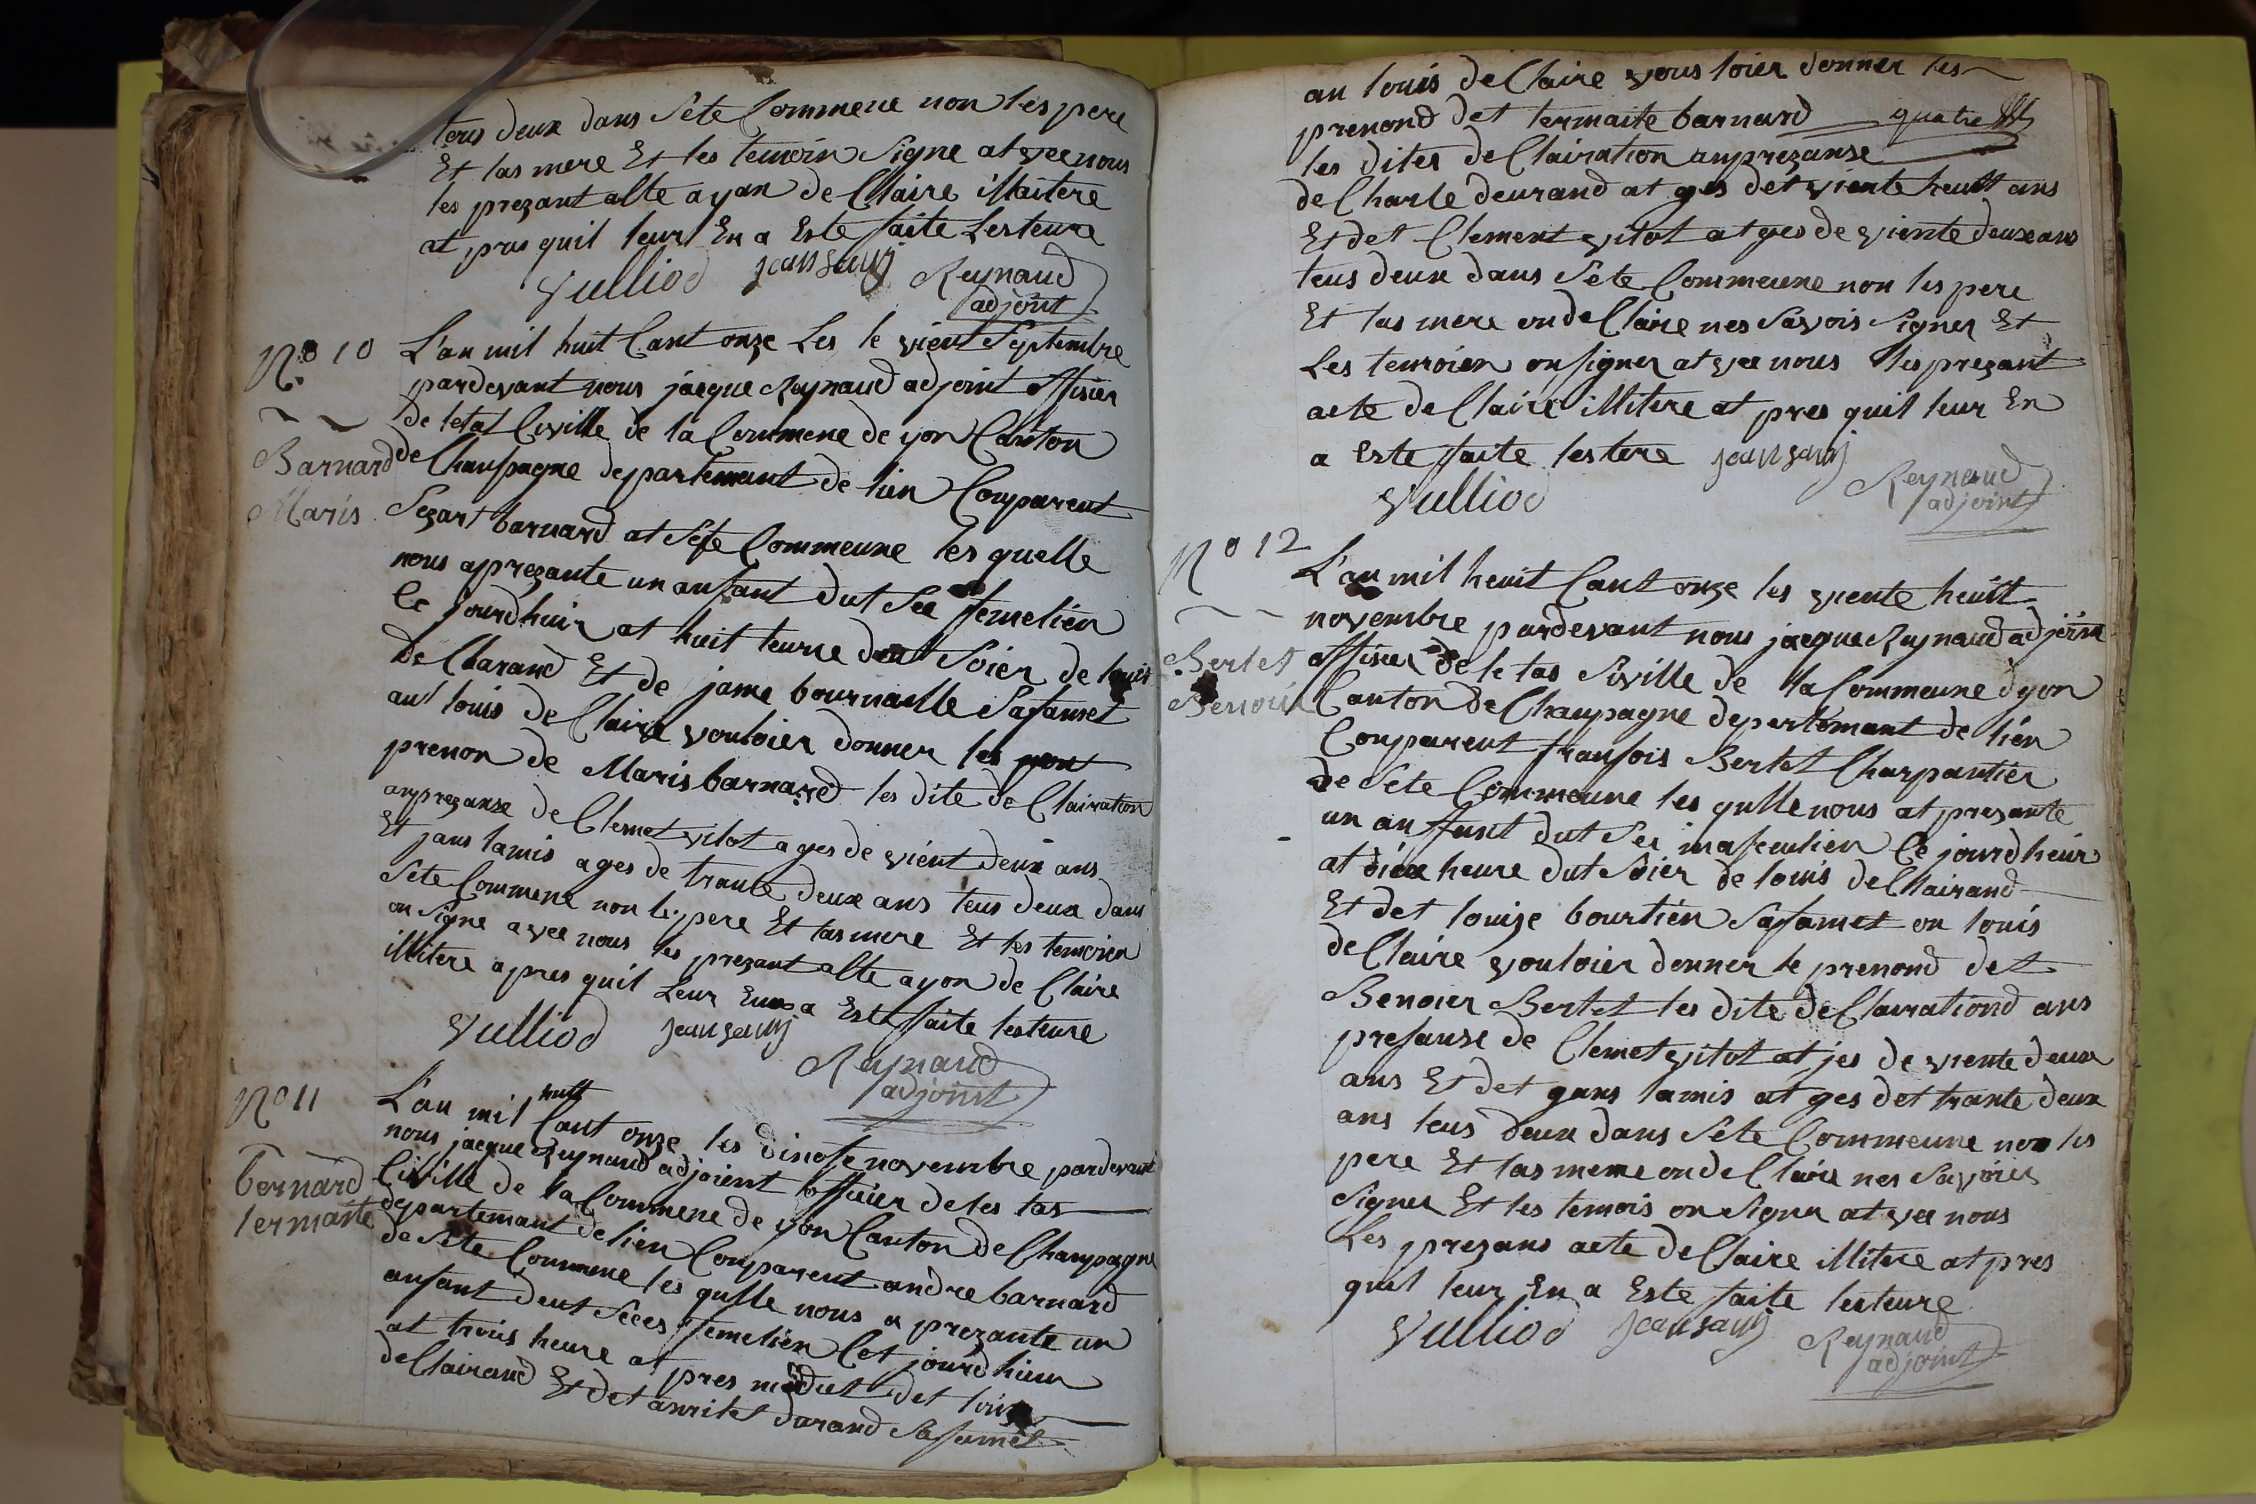 tous deux dans Sete Commene non les pere
Et las mere Et les temoin Signe at vec nous
les prezant alte ayan de Claire illaitere
at pres quil leur En a Este faite Lesteure
Vulliod jean samj Reynaud
adjoint
No 10
Barnard
Maris
L'an mil huit Cant onze Les le vient Septembre
pardevant nous jacque Reynaud adjoint offisier
de letat Civille de la Commene de yon Canton
de Chanpagne departemant de lien Comparent
Sezar barnard at Sete Commeune les quelle
nous aprezante un anfant dut See femelien
Ce jourdhuir at huit heure dut Soier de louis
de Clarand Et de jame bournaille Safamet
aut louis de Claire vouloier donner les
prenon de Maris barnard les dite de Clairation
anprezanse de Clemet vitot ages de vient deux ans
Et jans lamis ages de trante deux ans tous deux dans
Sete Commene non le pere Et las mere Et les temoien
on Signe avec nous les prezant alte ayon de Claire
illitere apres quil Leur Ena Este faite lesteure
Vulliod jean samj
Reynaud
adjoint
No 11
bernard
termaite
L'an mil huit Cant onze les dinofe novembre pardevant
nous jacque Reynaud adjoient offisier de les tas
Civille de la Commene de yon Canton de Chanpagne
departemant de lien Comparent andre barnard
de Sete Commene les qulle nous a prezante un
anfant deut Sees femelien Cet jourdhieur
at trois heure at pres midiet det louis
de Clairand Et det anritet darand Safamet
au louis de Claire vous loier donner les
prenond det termaite barnard quatre
les dites de Clairation anprezanse
de Charle deurand at ges det viente heutt ans
Et det Clement vitot at ges de viente deux ans
tous deux dans Sete Commeune non les pere
Et las mere on de Claire nes Savois Signer Et
Les temoien on Signer at vec nous les prezant
acte de Claire illitere at pres quil leur En
a Este faite lestere jean samj
Vulliod Reynaud
adjoint
No 12
Bertet
Benoin
L'an mil heuit Cant onze les viente heuitt
novembre pardevant nous jacque Reynaud adjoint
offisier de le tas Siville de la Commeune dyon
Canton de Chanpagne departemant de lien
Comparent fransois Bertet Charpantier
de Sete Commeune les qulle nous at prezante
un anfant dut See masculien Ce jourdheuir
at diex heure dut Soier de louis de Clairand
Et det louize bourtien Safamet on louis
de Claire vouloier donner le prenond det
Benoier Bertet les dite de Clairationd ans
presanse de Clemet vitot at jes de viente deux
ans Et det gans lamis at ges det trante deux
ans tous deux dans Sete Commeune non les
pere Et las mere on de Claire nes Savoier
Signer Et les temois on Signer at vec nous
Les prezans acte de Claire illitere at pres
quil leur En a Este faite lesteure
Vulliod jean samj Reynaud
adjoint